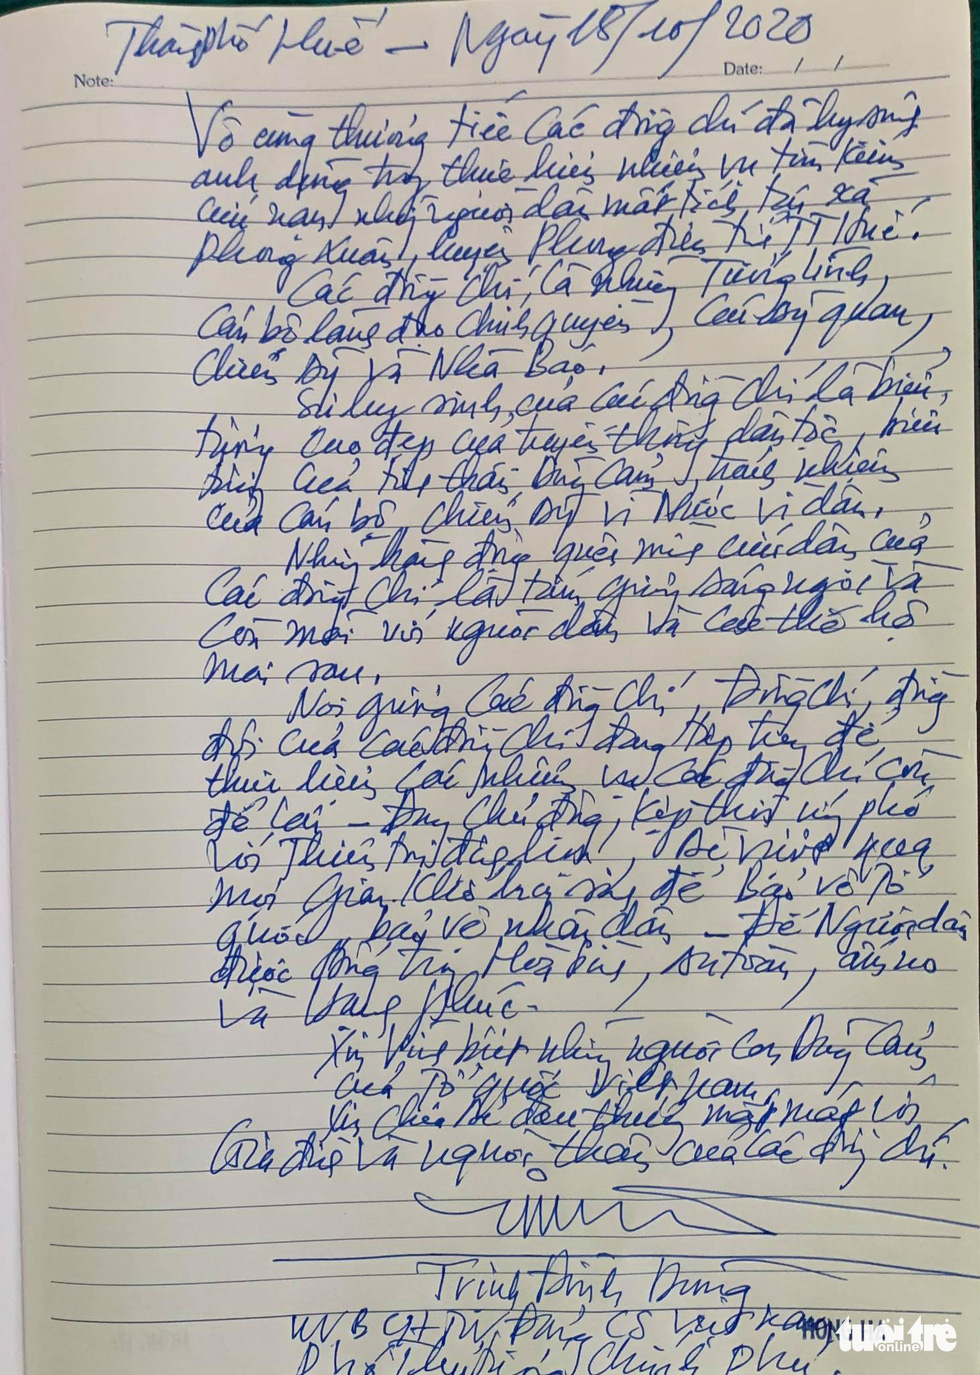 Thành phố Huế - Ngày 18/10/2020
Note:
Date: / /
Vô cùng thương tiếc Các đồng chí đã hy sinh
anh dũng trong thực hiện nhiệm vụ tìm kiếm
cứu nạn những người dân mất tích tại xã
Phong Xuân, huyện Phong điền tỉnh TT Huế.
Các đồng chí, là những Tướng lĩnh,
Cán bộ lãnh đạo chính quyền, các sỹ quan,
chiến sỹ và Nhà Báo.
Sự hy sinh của các đồng chí là biểu
tượng cao đẹp của truyền thống dân tộc, biểu
tượng của tinh thần Dũng Cảm, trách nhiệm
của Cán bộ, chiến sỹ vì Nước vì dân.
Những hành động quên mình cứu dân của
Các đồng chí là tấm gương sáng ngời và
còn mãi với người dân và các thế hệ
mai sau.
Noi gương Các đồng chí, Đồng chí, đồng
đội của các đồng chí đang tiếp tục để
thực hiện các nhiệm vụ các đồng chí còn
để lại - Đang chủ động, kịp thời ứng phó
với Thiên tai, để vượt qua
mọi gian khó hy sinh để Bảo vệ Tổ
quốc, bảo vệ nhân dân - Để Người dân
được sống trong Hoà bình, An toàn, ấm no
và Hạnh phúc.
Xin Vĩnh biệt những người con Dũng Cảm
của Tổ quốc Việt nam.
Xin Chia sẻ đau thương mất mát với
Gia đình và người thân của các đồng chí.
Trịnh Đình Dũng
UVBCHTW Đảng CS Việt Nam,
Phó Thủ tướng Chính phủ.
tuổi trẻ
online